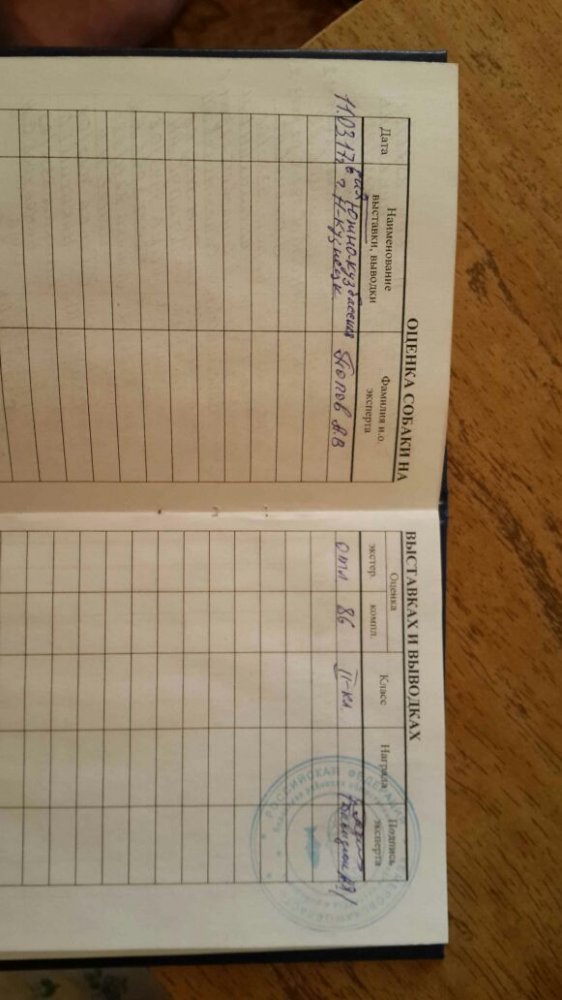 ОЦЕНКА СОБАКИ НА
ВЫСТАВКАХ И ВЫВОДКАХ
Дата
Наименование
выставки, выводки
Фамилия и.о.
эксперта
Оценка
экстер.
компл.
Класс
Награда
Подпись
эксперта
11.03.17г.
Южно-кузбасская
г. Н-Кузнецк.
Попов А.В
отл
86
II-кл
РОССИЙСКАЯ ФЕДЕРАЦИЯ